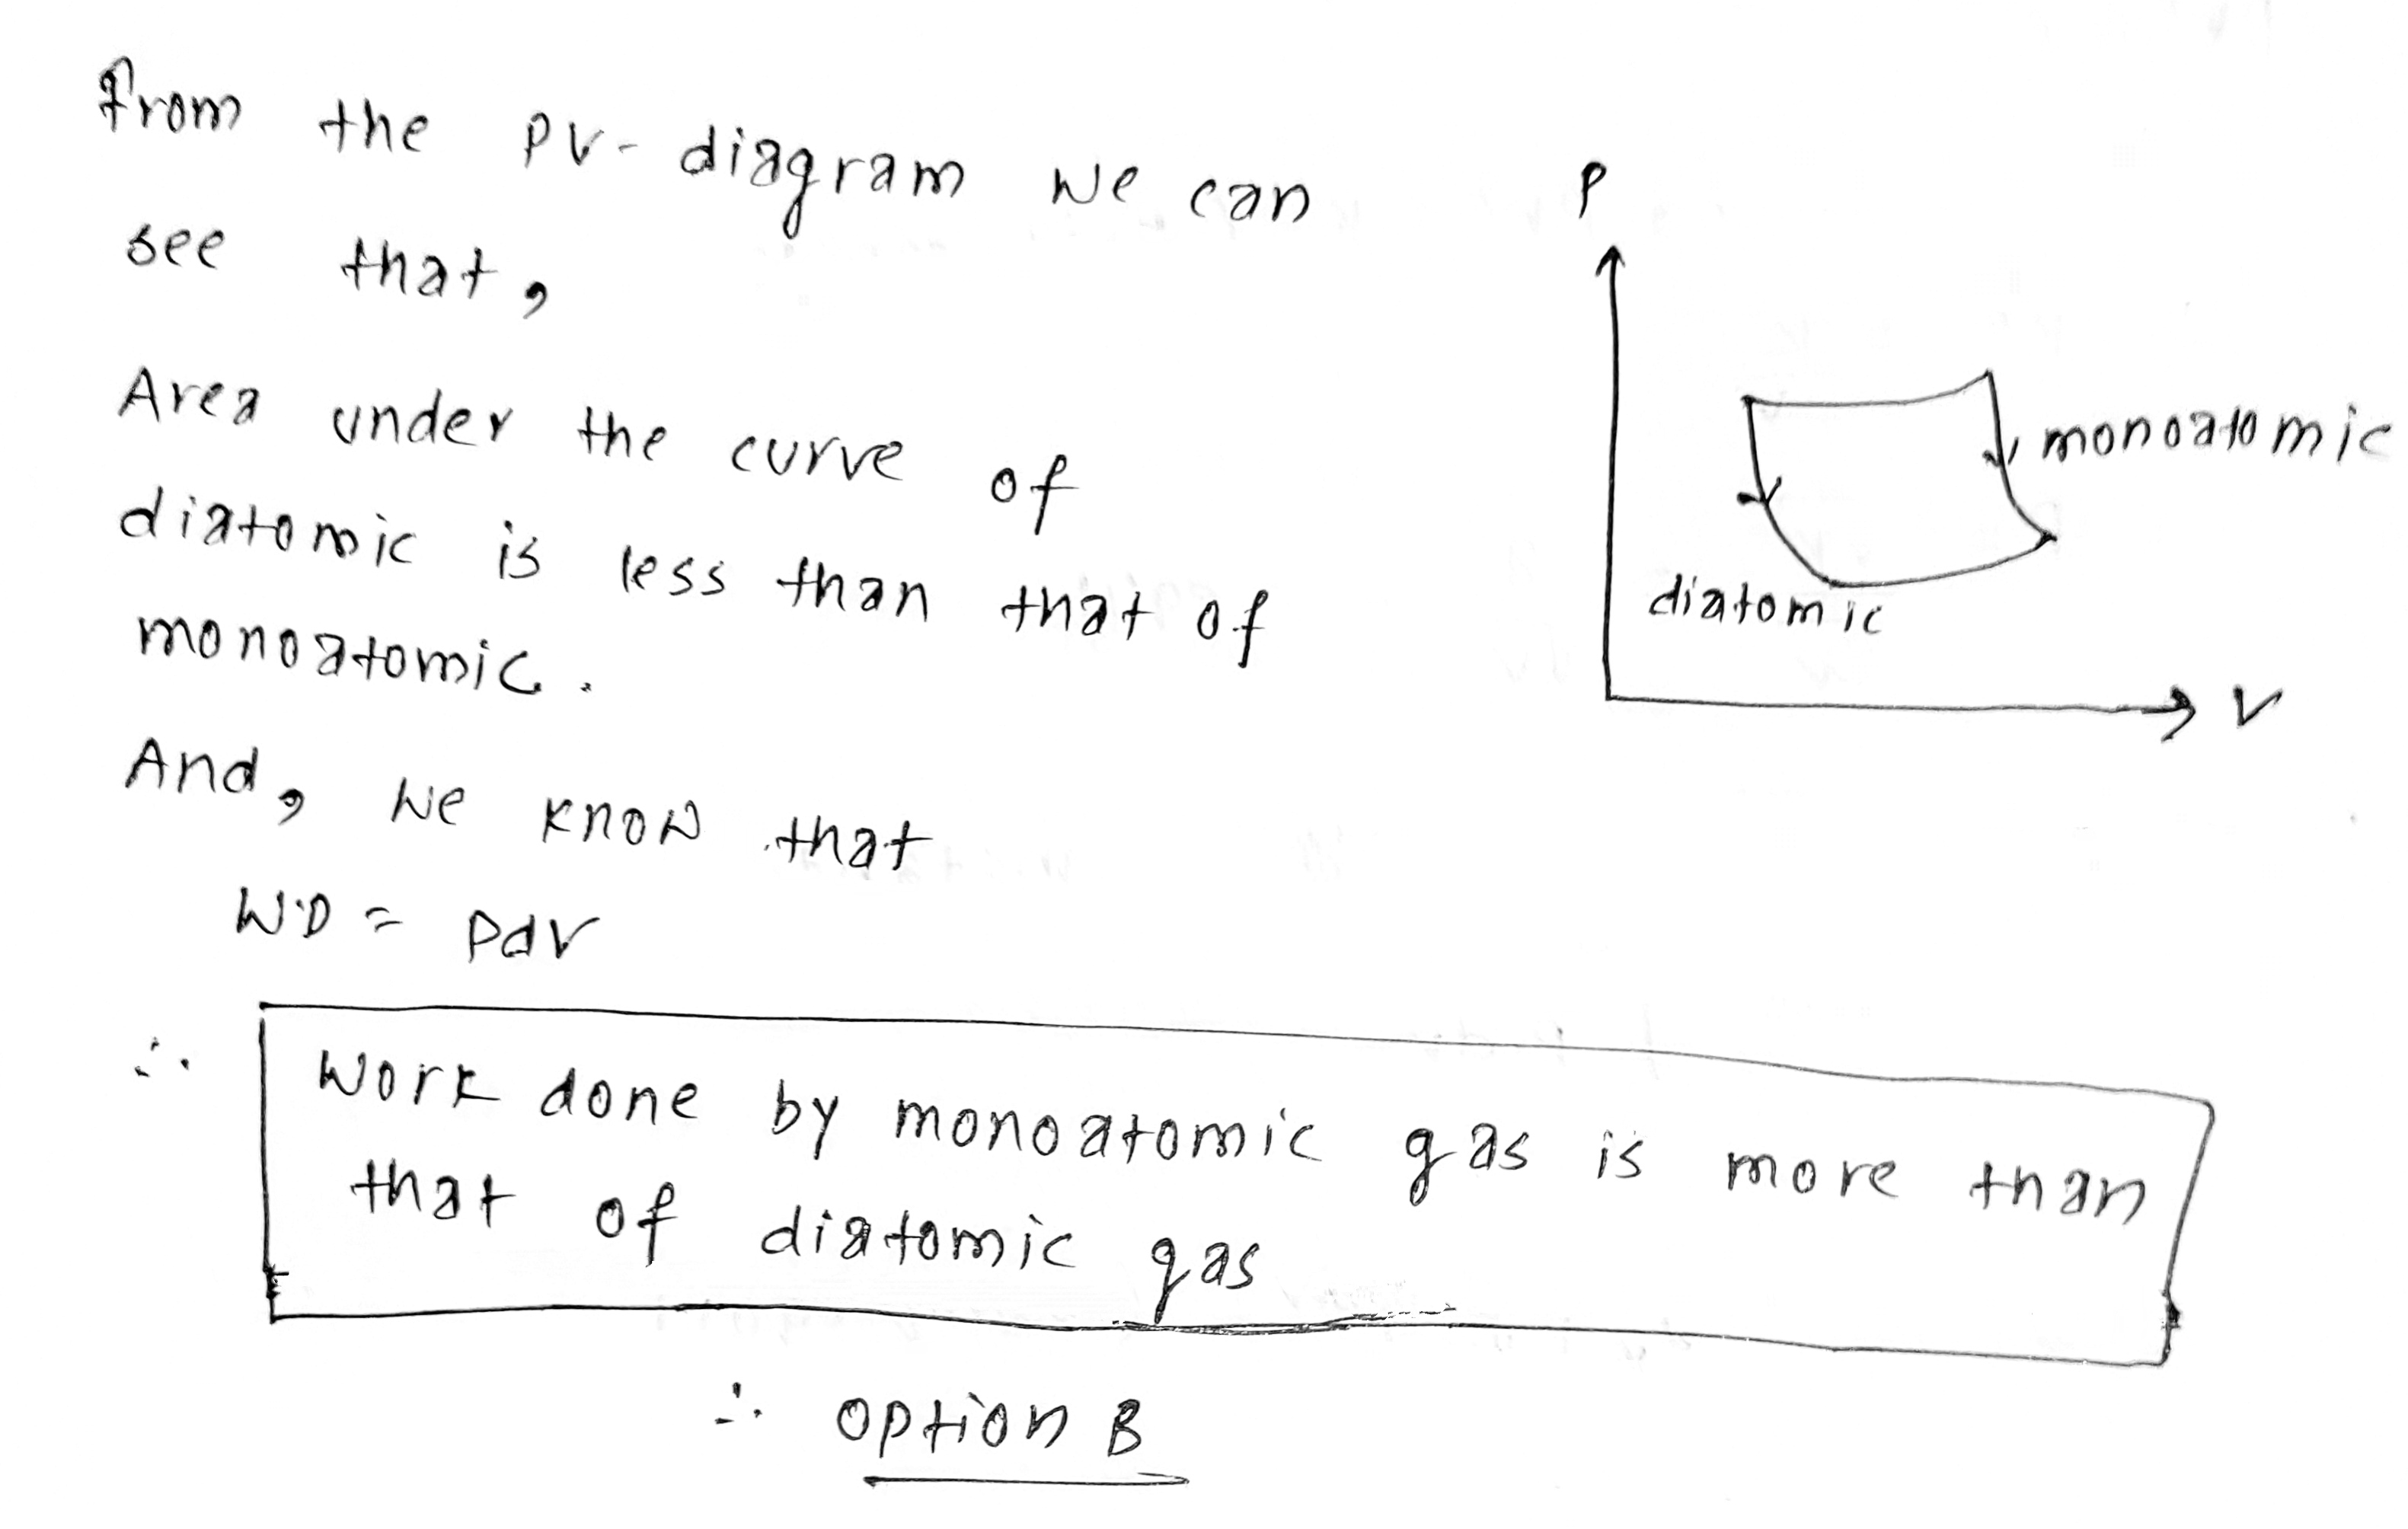 From the PV- diagram we can
see that,
Area under the curve of
diatomic is less than that of
monoatomic.
And, we know that
W.D = PdV
∴ Work done by monoatomic gas is more than
that of diatomic gas
∴ option B
P
monoatomic
diatomic
V